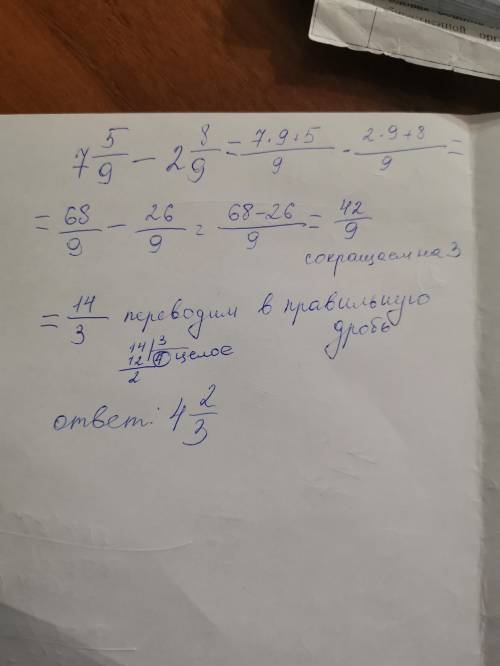 ственной орг
7 5/9 - 2 8/9 = 7·9+5/9 - 2·9+8/9 =
= 68/9 - 26/9 = 68-26/9 = 42/9
сокращаем на 3
= 14/3 переводим в правильную
дробь
14 | 3
12 | 4 целое
2
ответ: 4 2/3